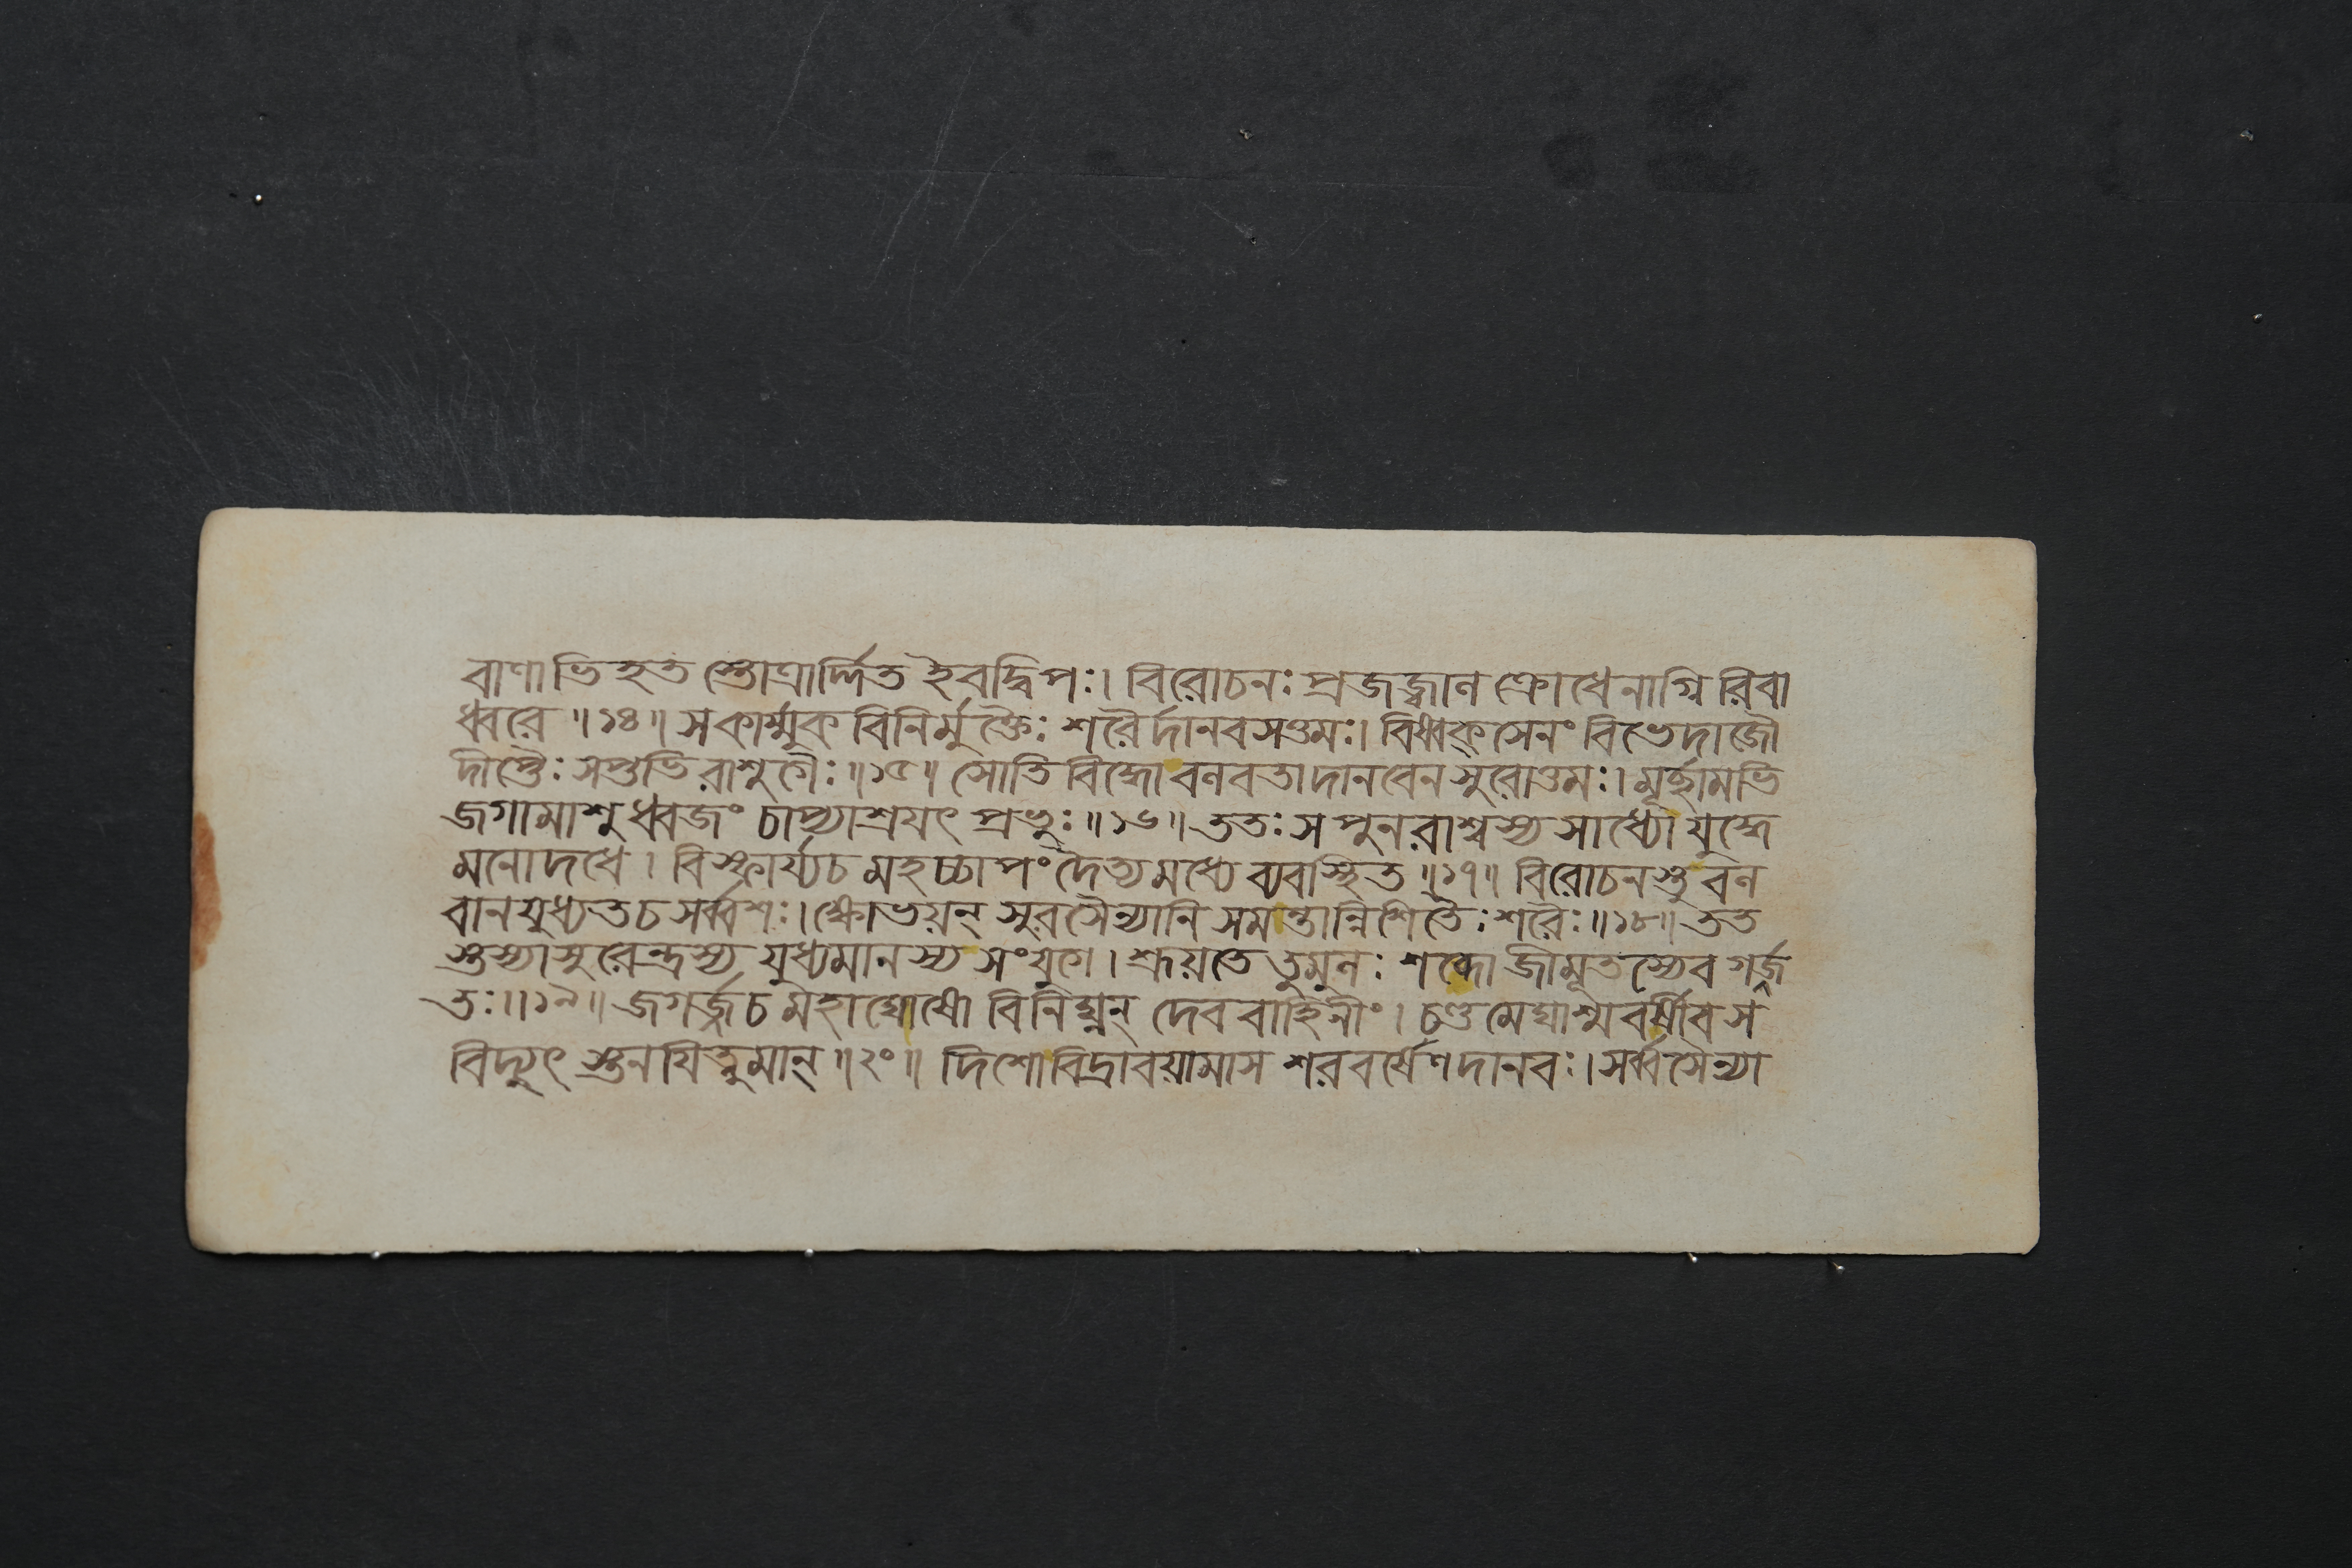 বাণাভিহত স্তোত্রার্দ্দিত ইবদ্বিপঃ। বিরোচনঃ প্রজজ্বাল ক্রোধেনাগ্নি রিবা
ধ্বরে ॥১৪॥ সকার্ম্মুক বিনির্মুক্তৈঃ শরৈর্দানবসত্তমঃ। বিষ্বক্‌সেনং বিভেদাজৌ
দীপ্তৈঃ সপ্তভি রাশুগৈঃ ॥১৫॥ সোতি বিদ্ধো বলবতা দানবেন সুরোত্তমঃ। মূর্চ্ছামভি
জগামাশু ধ্বজং চাপ্যাশ্রযৎ প্রভুঃ ॥১৬॥ ততঃ স পুনরাশ্বস্য সাধ্যো যুদ্ধে
মনোদধে । বিস্ফার্য্যচ মহচ্চাপং দৈত্যমধ্যে ব্যবস্থিত ॥১৭॥ বিরোচনস্তু বল
বানযুধ্যতচ সর্ব্বশঃ। ক্ষোভয়ন্ সুরসৈন্যানি সমন্তান্নিশিতৈঃ শরৈঃ ॥১৮॥ তত
স্তস্যাসুরেন্দ্রস্য যুধ্যমানস্য সংযুগে। শ্রূয়তে তুমুলঃ শব্দো জীমূতস্যেব গর্জ্জ
তঃ ॥১৯॥ জগর্জ্জচ মহাঘোষো বিনিঘ্নন্ দেববাহিনীং। চণ্ডমেঘাশ্মবর্ষীবস
বিদ্যুৎ স্তনযিত্নুমান্ ॥২০॥ দিশোবিদ্রাবয়ামাস শরবর্ষেণ দানবঃ। সর্ব্বসৈন্যা